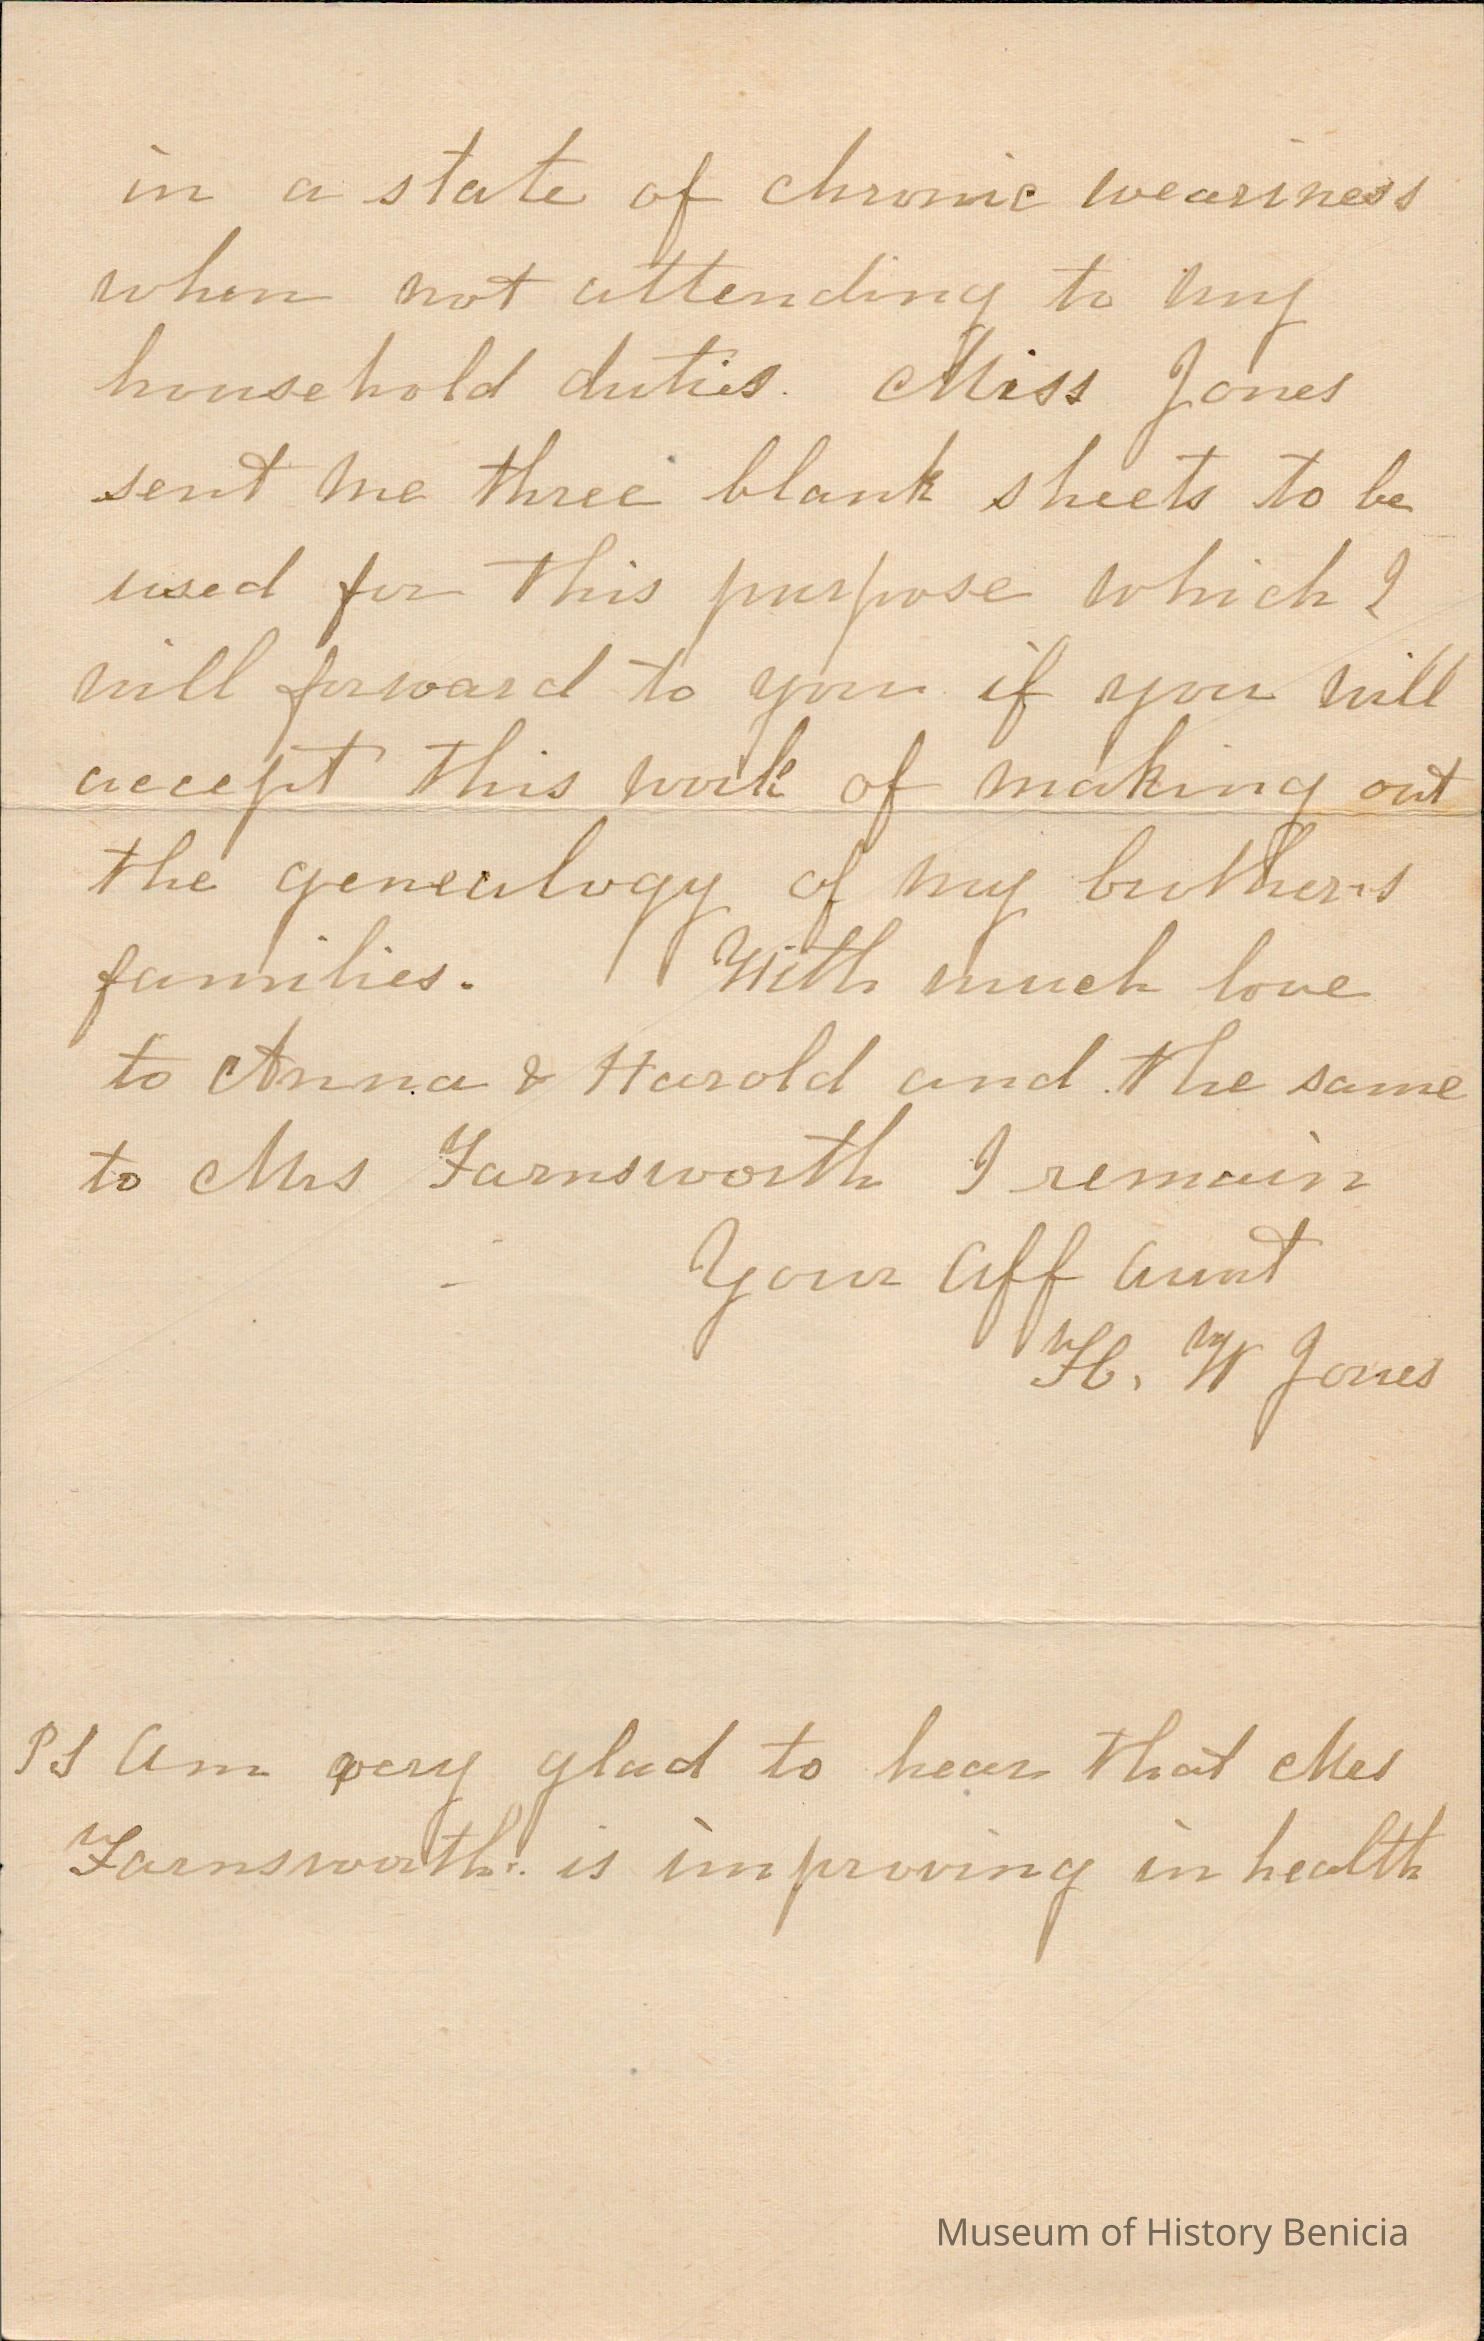 in a state of chronic weariness
when not attending to my
household duties. Miss Jones
sent me three blank sheets to be
used for this purpose which I
will forward to you if you will
accept this work of making out
the genealogy of my brothers
families. With much love
to Anna & Harold and the same
to Mrs Farnsworth I remain
Your aff aunt
H. W Jones
PS Am very glad to hear that Mrs
Farnsworth is improving in health
Museum of History Benicia